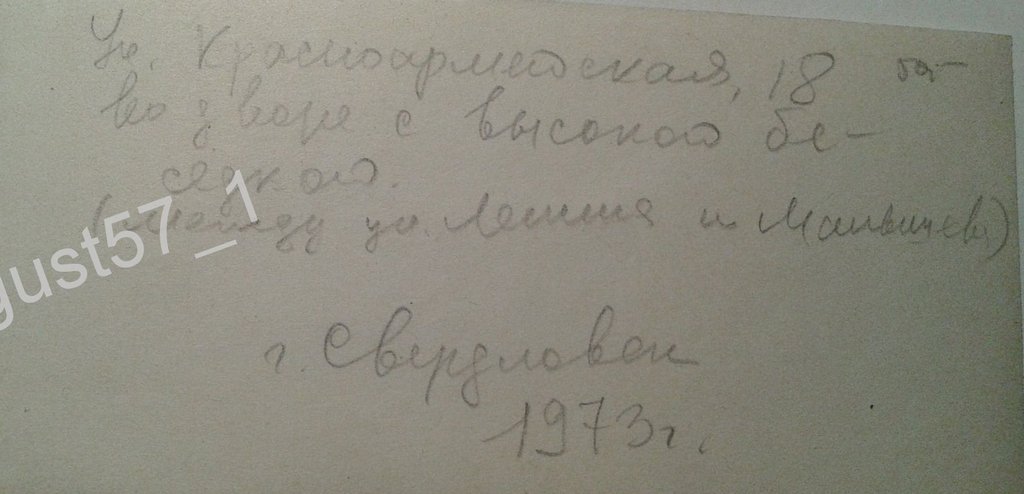 Ул. Красноармейская, 18
во дворе с высокой бе-
седкой.
(между ул. Ленина и Малышева)
г. Свердловск
1973 г.
gust57_1